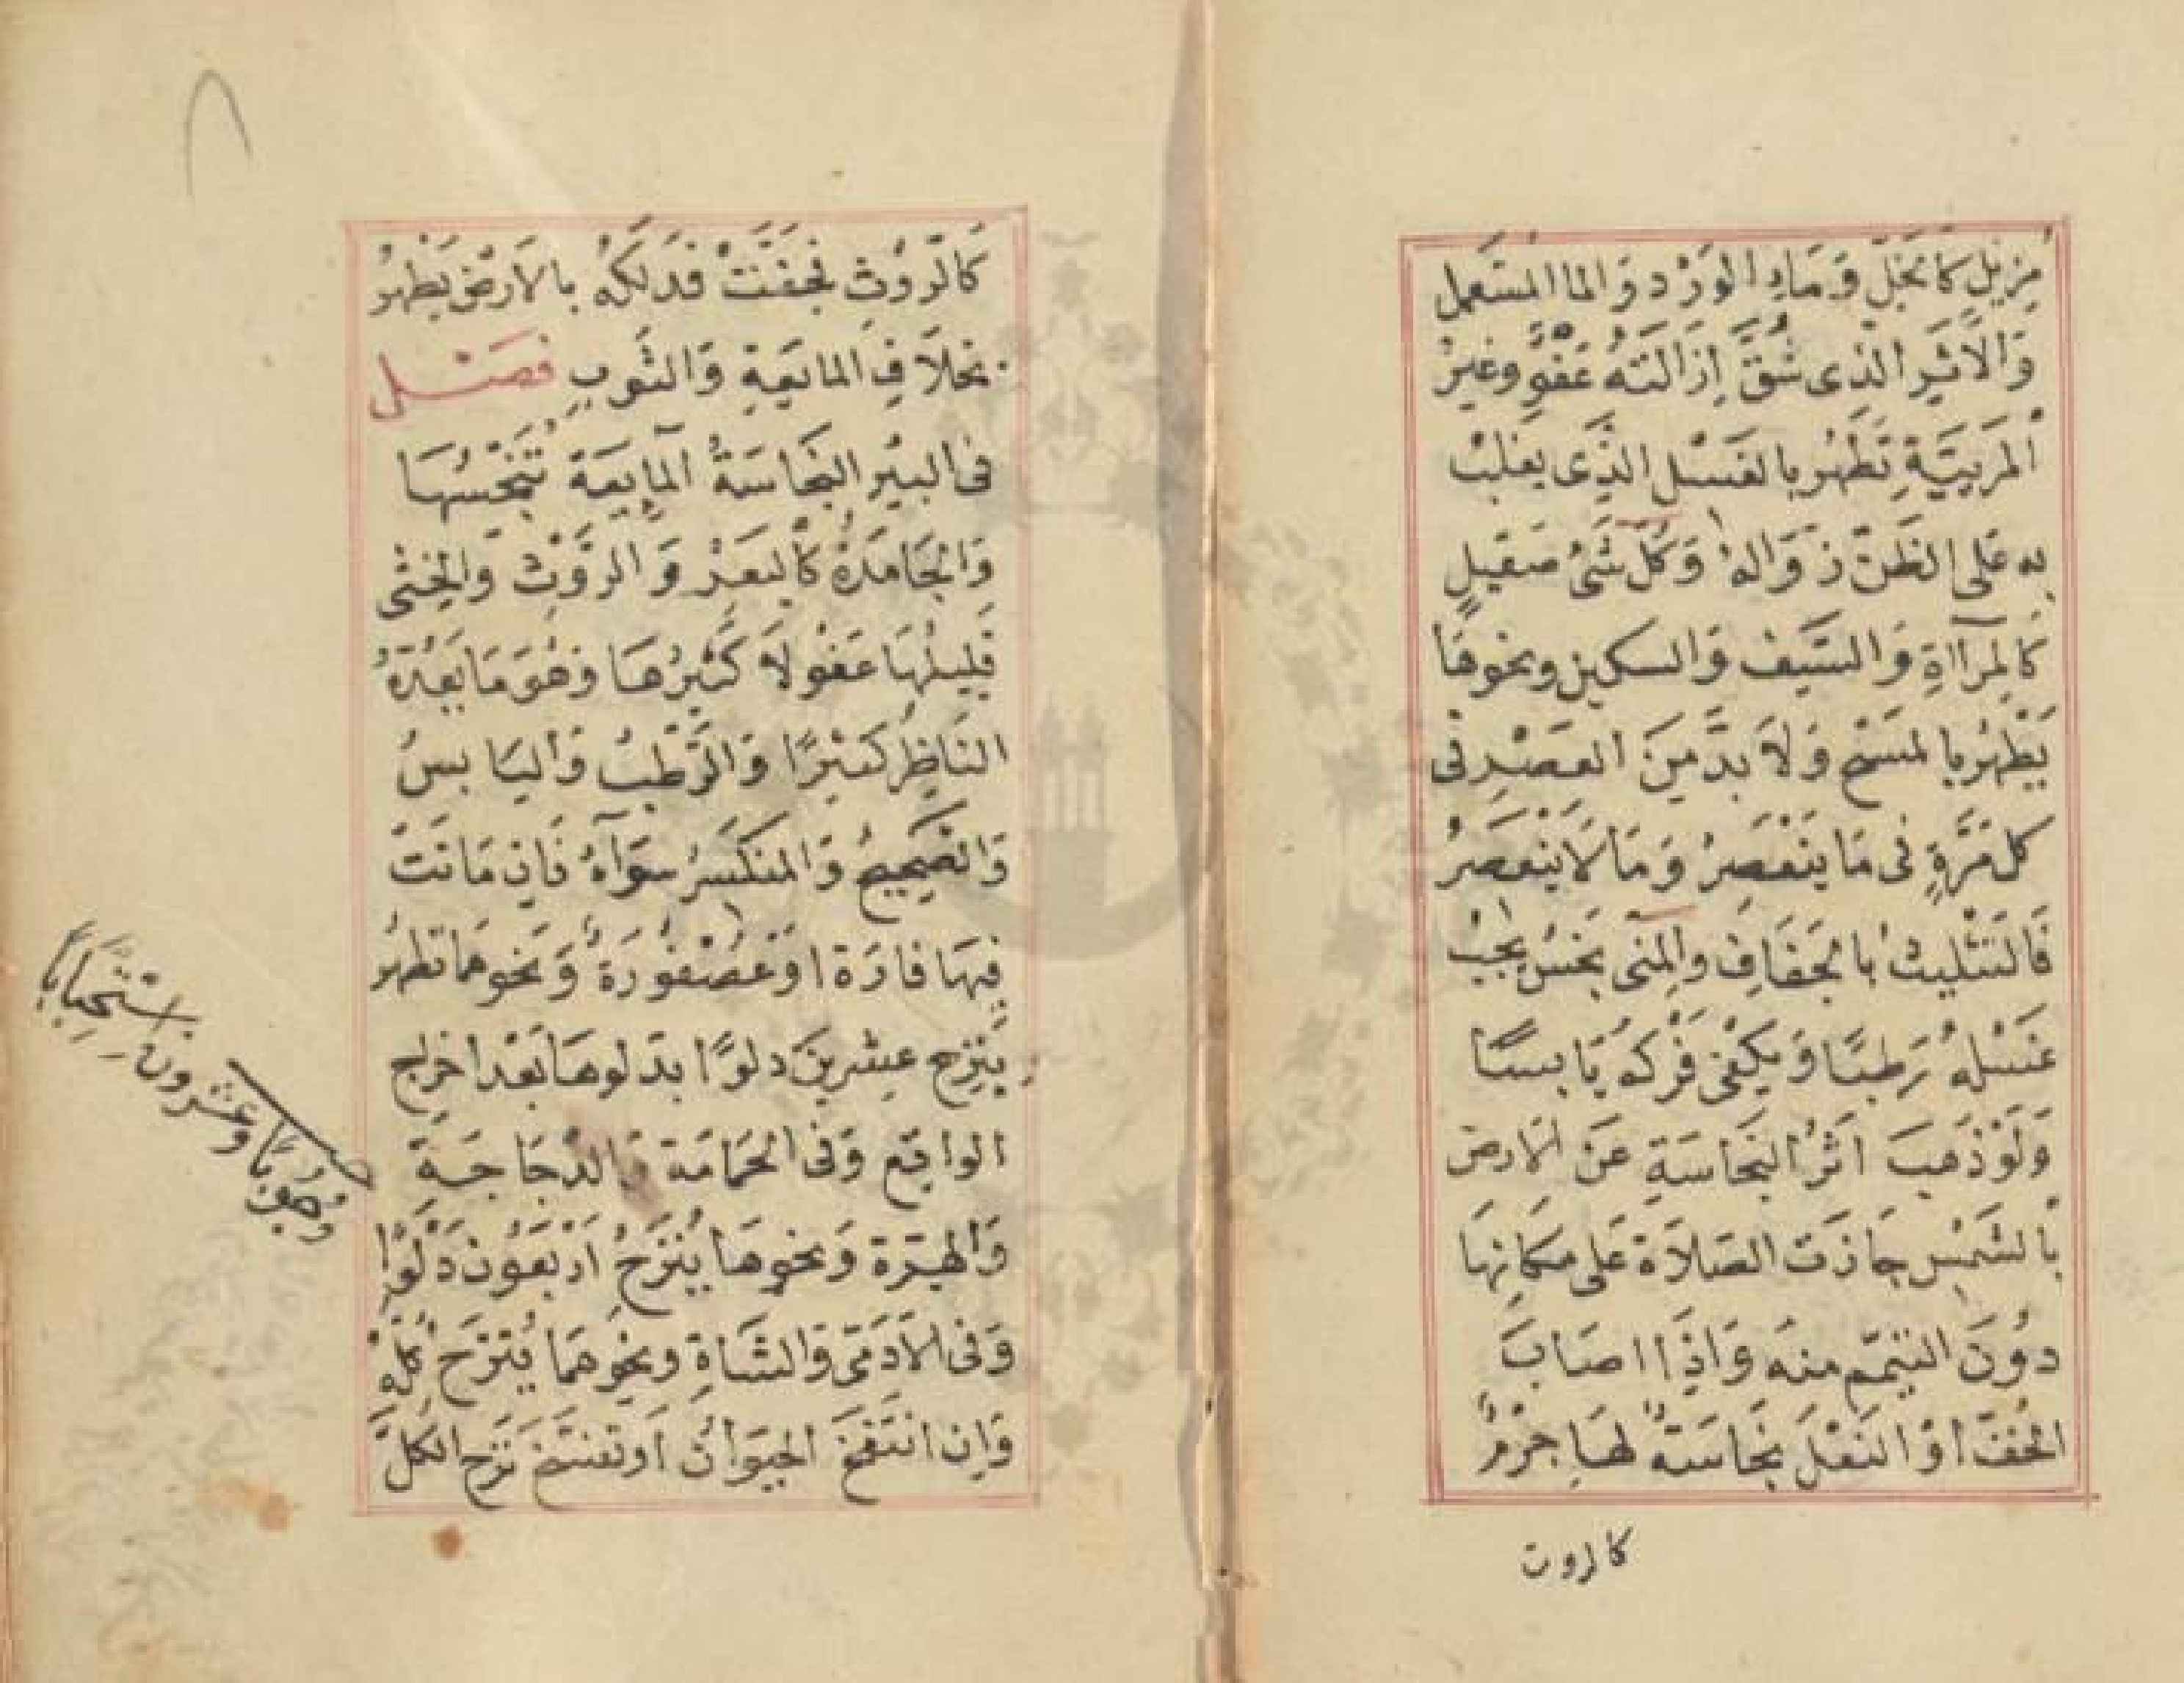 مُزِيلٍ كَالخَلِّ وَمَاءِ الوَرْدِ وَالما المُستَعمل
وَالاَثَرِ الذِى شَقَّ اِزَالَتهُ عَفْوٌ وغيرُ
المَرئِيَّةِ تَطْهُر بالغَسْلِ الذِى يغلبُ
بِه عَلى الظَنّ زوَالهُ وَكُلّ شَئ صَقيلٍ
كَالمِرآاةِ وَالسَيف وَالسكين ونحوهَا
يَطْهُرُ بالمسَح وَلاَ بدَّ مِنَ العَصْرِ فى
كل مَرّةٍ فى مَا يَنْعَصِرُ وَمَا لاَ يَنْعَصِرُ
فَالتَثْليثُ بالجَفَافِ والمنى نجسُ يجِبُ
غَسْلهُ رَطبًا وَيَكفى فَرْكهُ يَابسًا
وَلَوْ ذَهبَ اَثرُ النجَاسَةِ عَن الارض
بالشَمْسِ جَازَت الصَلاَة عَلى مكانِهَا
دوُنَ التيَمّم منهَ وَاذَِا اصَابَ
الخُفَّ اوْ النَعْلَ نجَاسَةٌ لهَا جِرْمٌ
كالروث
كَالرّوْثِ فجَفّتْ فَدَلَكَهُ بالاَرضِ يَطْهُرُ
بخلاَفِ المايعَةِ وَالثَوبِ فصَل
فى البيْر النجَاسَةُ المايعَة تُنَجّسُهَا
وَالجَامدَةُ كَالبَعْرِ وَالروْثِ وَالخِثى
قلِيلُهَا عَفْو لاَ كَثيرُهَا وَهُوَ مَا يَعُدّهُ
النَاظِرُ كَثيْرًا وَالرَّطبُ وَاليَابسُ
وَالصَحِيحُ وَالمنكَسرُ سَوَآءٌ فَاِن مَاتَتْ
فِيهَا فارَة اوْ عُصْفوُرَةٌ وَنحوهمَا تطْهُرُ
بنزح عِشرينَ دلوًا بدَلوهَا بَعْد اخراج
الواقع وَفى الحمَامَة وَالدّجَاجَةِ
وَالهِرّة وَنحوهَا يُنزَحُ اَرْبَعوُن دَلْوًا
وَفى الآدَمى وَالشاةِ ونحوهمَا يُنزَح كلّهُ
وَاِن انتَفَخَ الحيَوَانُ اَو تفسّخ نَزحَ الكلّ
وُجوُبًا وعشرون
اسْتحِبَابًا